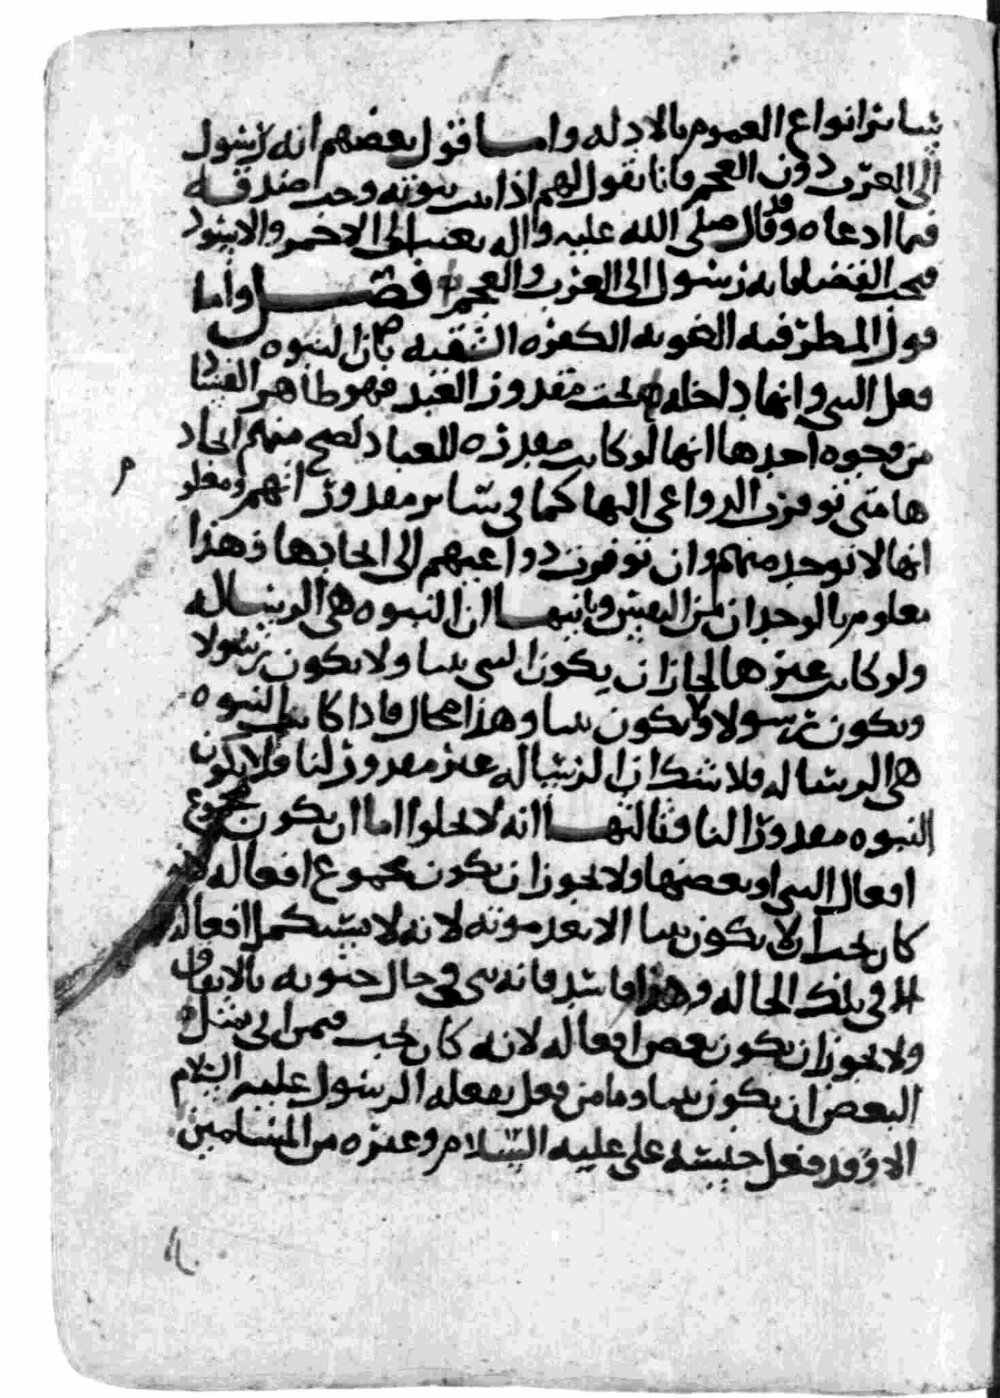 سائر انواع العموم بالادله واما قول بعضهم انه رسول
الى العرب دون العجم فانا نقول لهم اذا ثبت نبوته وجب صدقه
فيما ادعاه وقد قال صلى الله عليه واله بعثت الى الاحمر والاسود
فيجب القضا بانه رسول الى العرب والعجم فصل واما
قول المطرفيه الغويه الكفره الشقيه بان النبوه
فعل النبي وانها داخله تحت مقدور العبد فهو ظاهر الفساد
من وجوه احدها انها لو كانت مقدوره للعباد لصح منهم ايجاد
ها متى توفرت الدواعي اليها كما في سائر مقدوراتهم ومعلو
انها لا توجد منهم وان توفرت دواعيهم الى ايجادها وهذا
معلوم بالوجدان من النفس وثانيها ان النبوه هي الرساله
ولو كانت غيرها لجاز ان يكون النبي نبيا ولا يكون رسولا
ويكون رسولا ولا يكون نبيا وهذا محال فاذا كانت النبوه
هي الرساله فلا شك ان الرساله غير مقدور لنا فلا يكون
النبوه مقدورا لنا وثالثها انه لا يخلوا اما ان يكون مجموع
افعال النبي او بعضها ولا يجوز ان يكون مجموع افعاله لانه
كان يجب ان لا يكون نبيا الا بعد موته لانه لا يستكمل افعاله
الا في تلك الحاله وهذا فاسد فانه نبي في حال حيوته بالاتفاق
ولا يجوز ان يكون بعض افعاله لانه كان يجب فيمن اتى بمثل
البعض ان يكون نبيا وما من فعل يفعله الرسول عليه السلام
الا وقد فعل جنسه علي عليه السلام وغيره من المسلمين